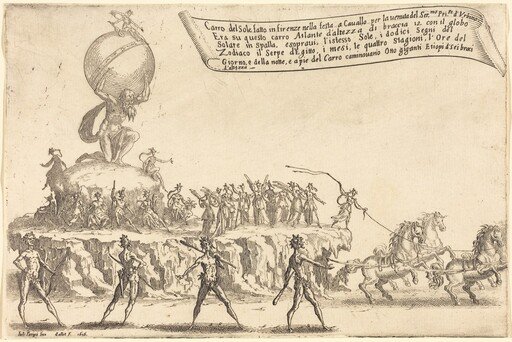 Carro del Sole fatto in firenze nella festa a Cavallo, per la venuta del Ser.mo Pri.pe d'Urbino
Era su questo carro Atlante d'altezza di braccia 12 con il globo
Solare in Spalla, e sopraui l'istesso Sole, i dodici Segni del
Zodiaco il Serpe d'Egitto, i mesi, le quattro Stagioni, l'Ore del
Giorno, e della notte, e a pie del Carro caminauano Otto giganti Etiopi di sei bracci
d'altezza
Iuli Parigii Inv. Callot F. 1616.